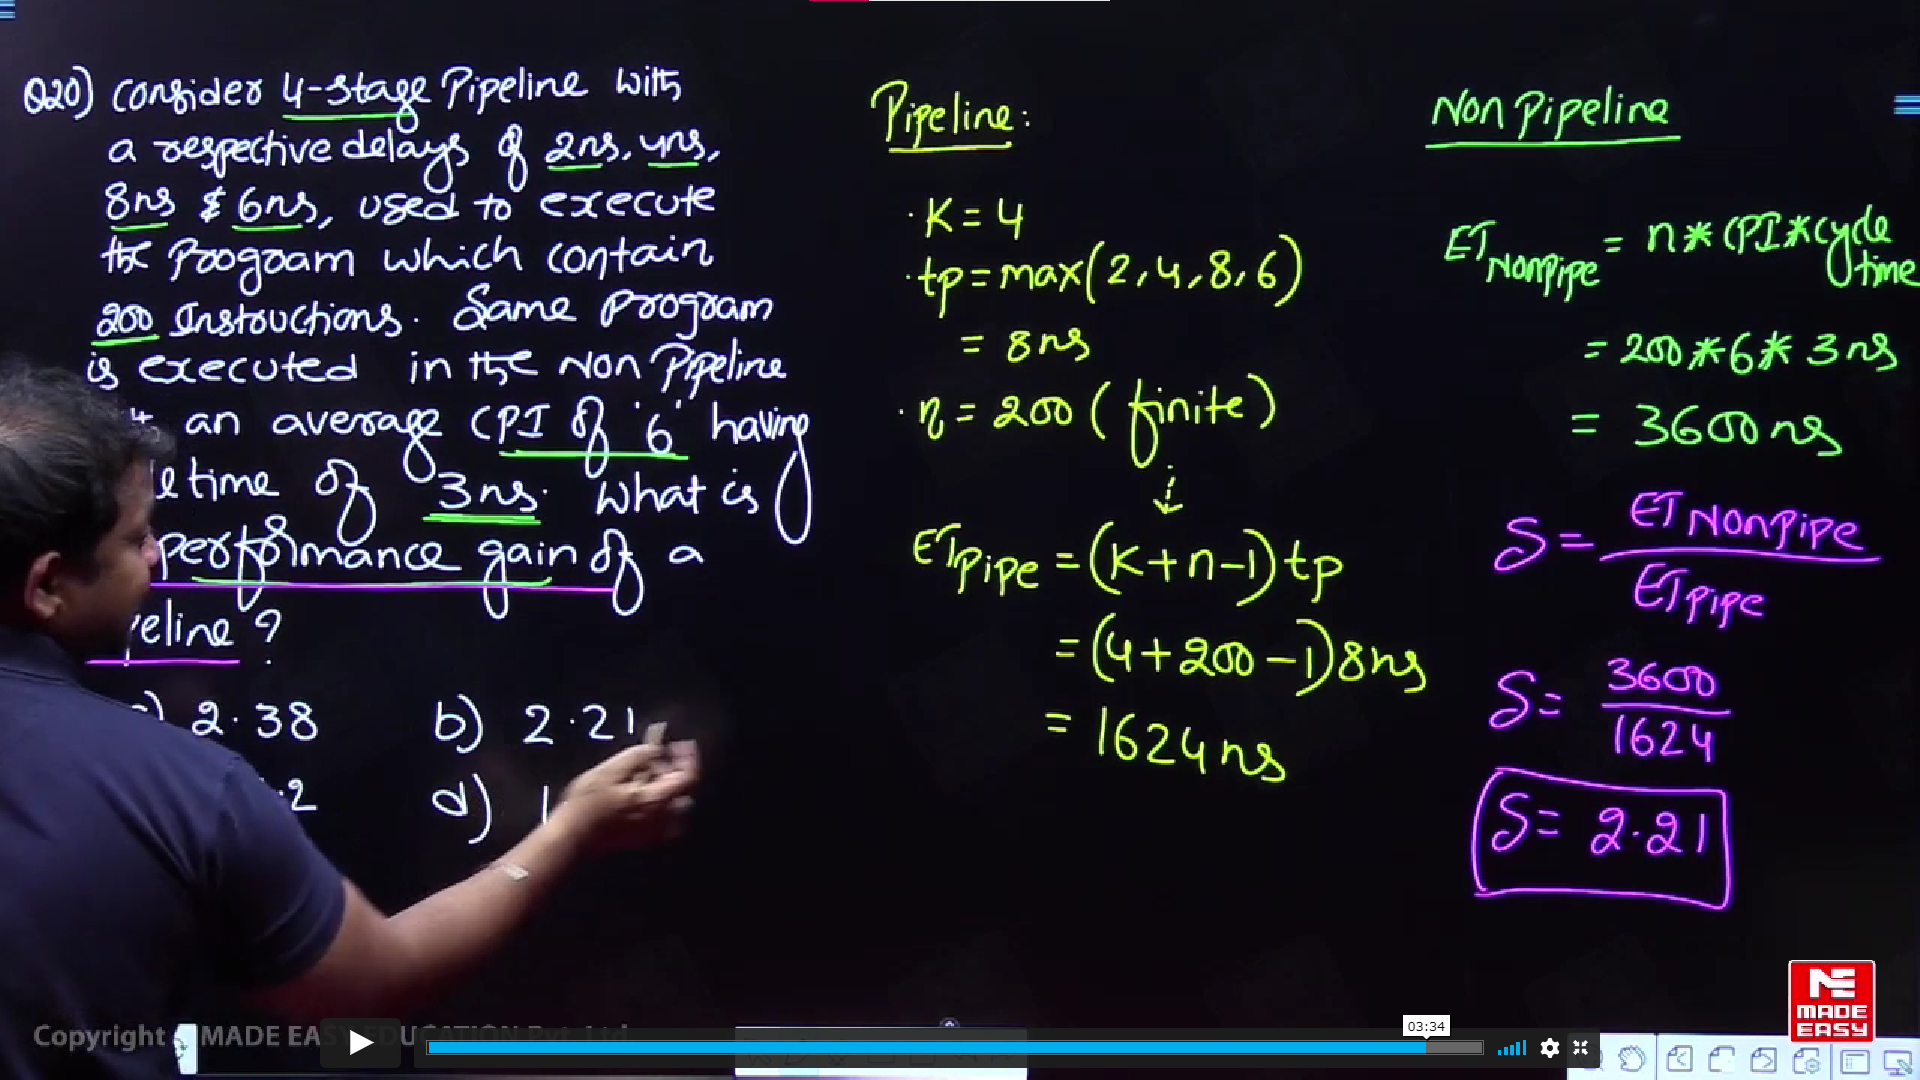 Q20) Consider 4-stage Pipeline with
a respective delays of 2ns, 4ns,
8ns & 6ns, used to execute
the Program which contain
200 Instructions. Same program
is executed in the Non Pipeline
an average CPI of '6' having
time of 3ns. What is
performance gain of a
eline ?
2.38 b) 2.21
.2 d) 1
Pipeline:
. K = 4
. tp = max(2, 4, 8, 6)
= 8ns
. n = 200 (finite)
↓
ET Pipe = (K+n-1) tp
= (4+200-1) 8ns
= 1624 ns
Non Pipeline
ET NonPipe = n * CPI * cycle time
= 200 * 6 * 3ns
= 3600 ns
S = ET NonPipe / ET Pipe
S = 3600 / 1624
S = 2.21
MADE EASY
Copyright MADE EASY EDUCATION Pvt. Ltd
03:34